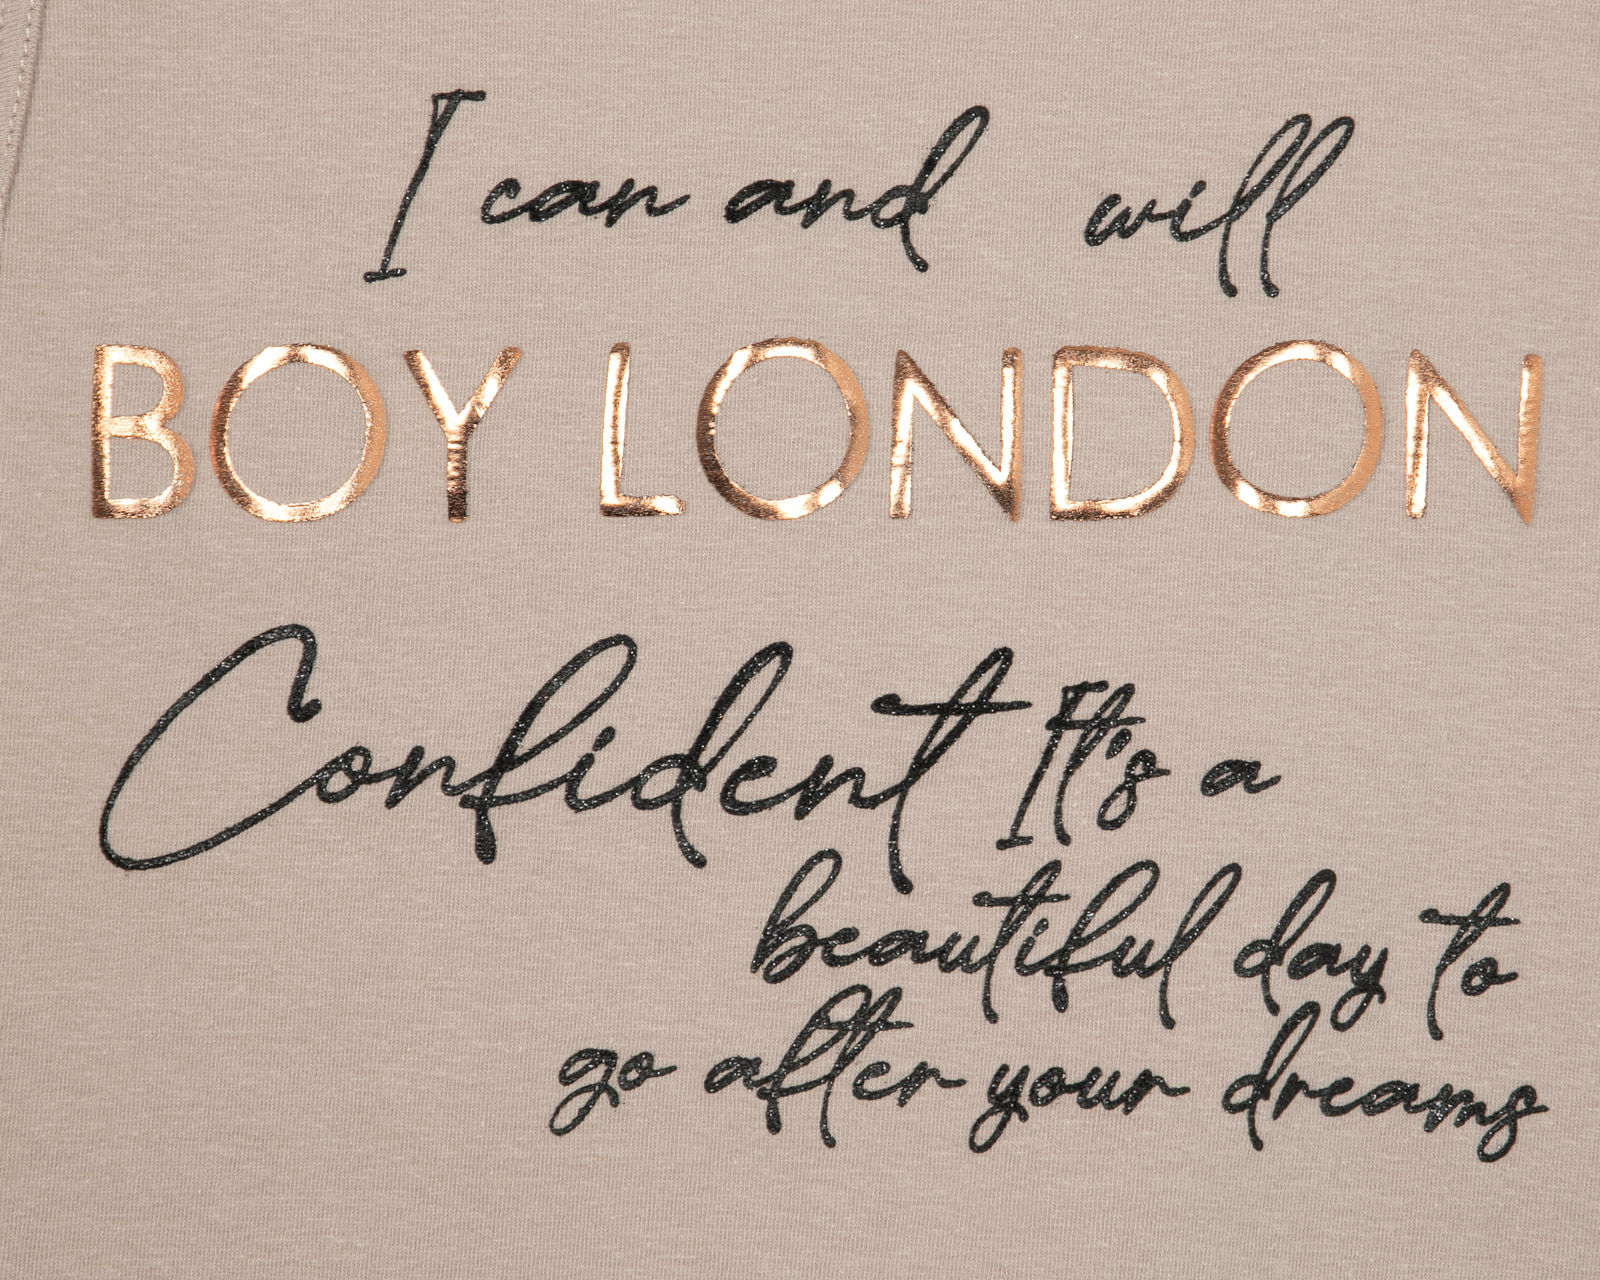 I can and will
BOY LONDON
Confident It's a
beautiful day to
go after your dreams